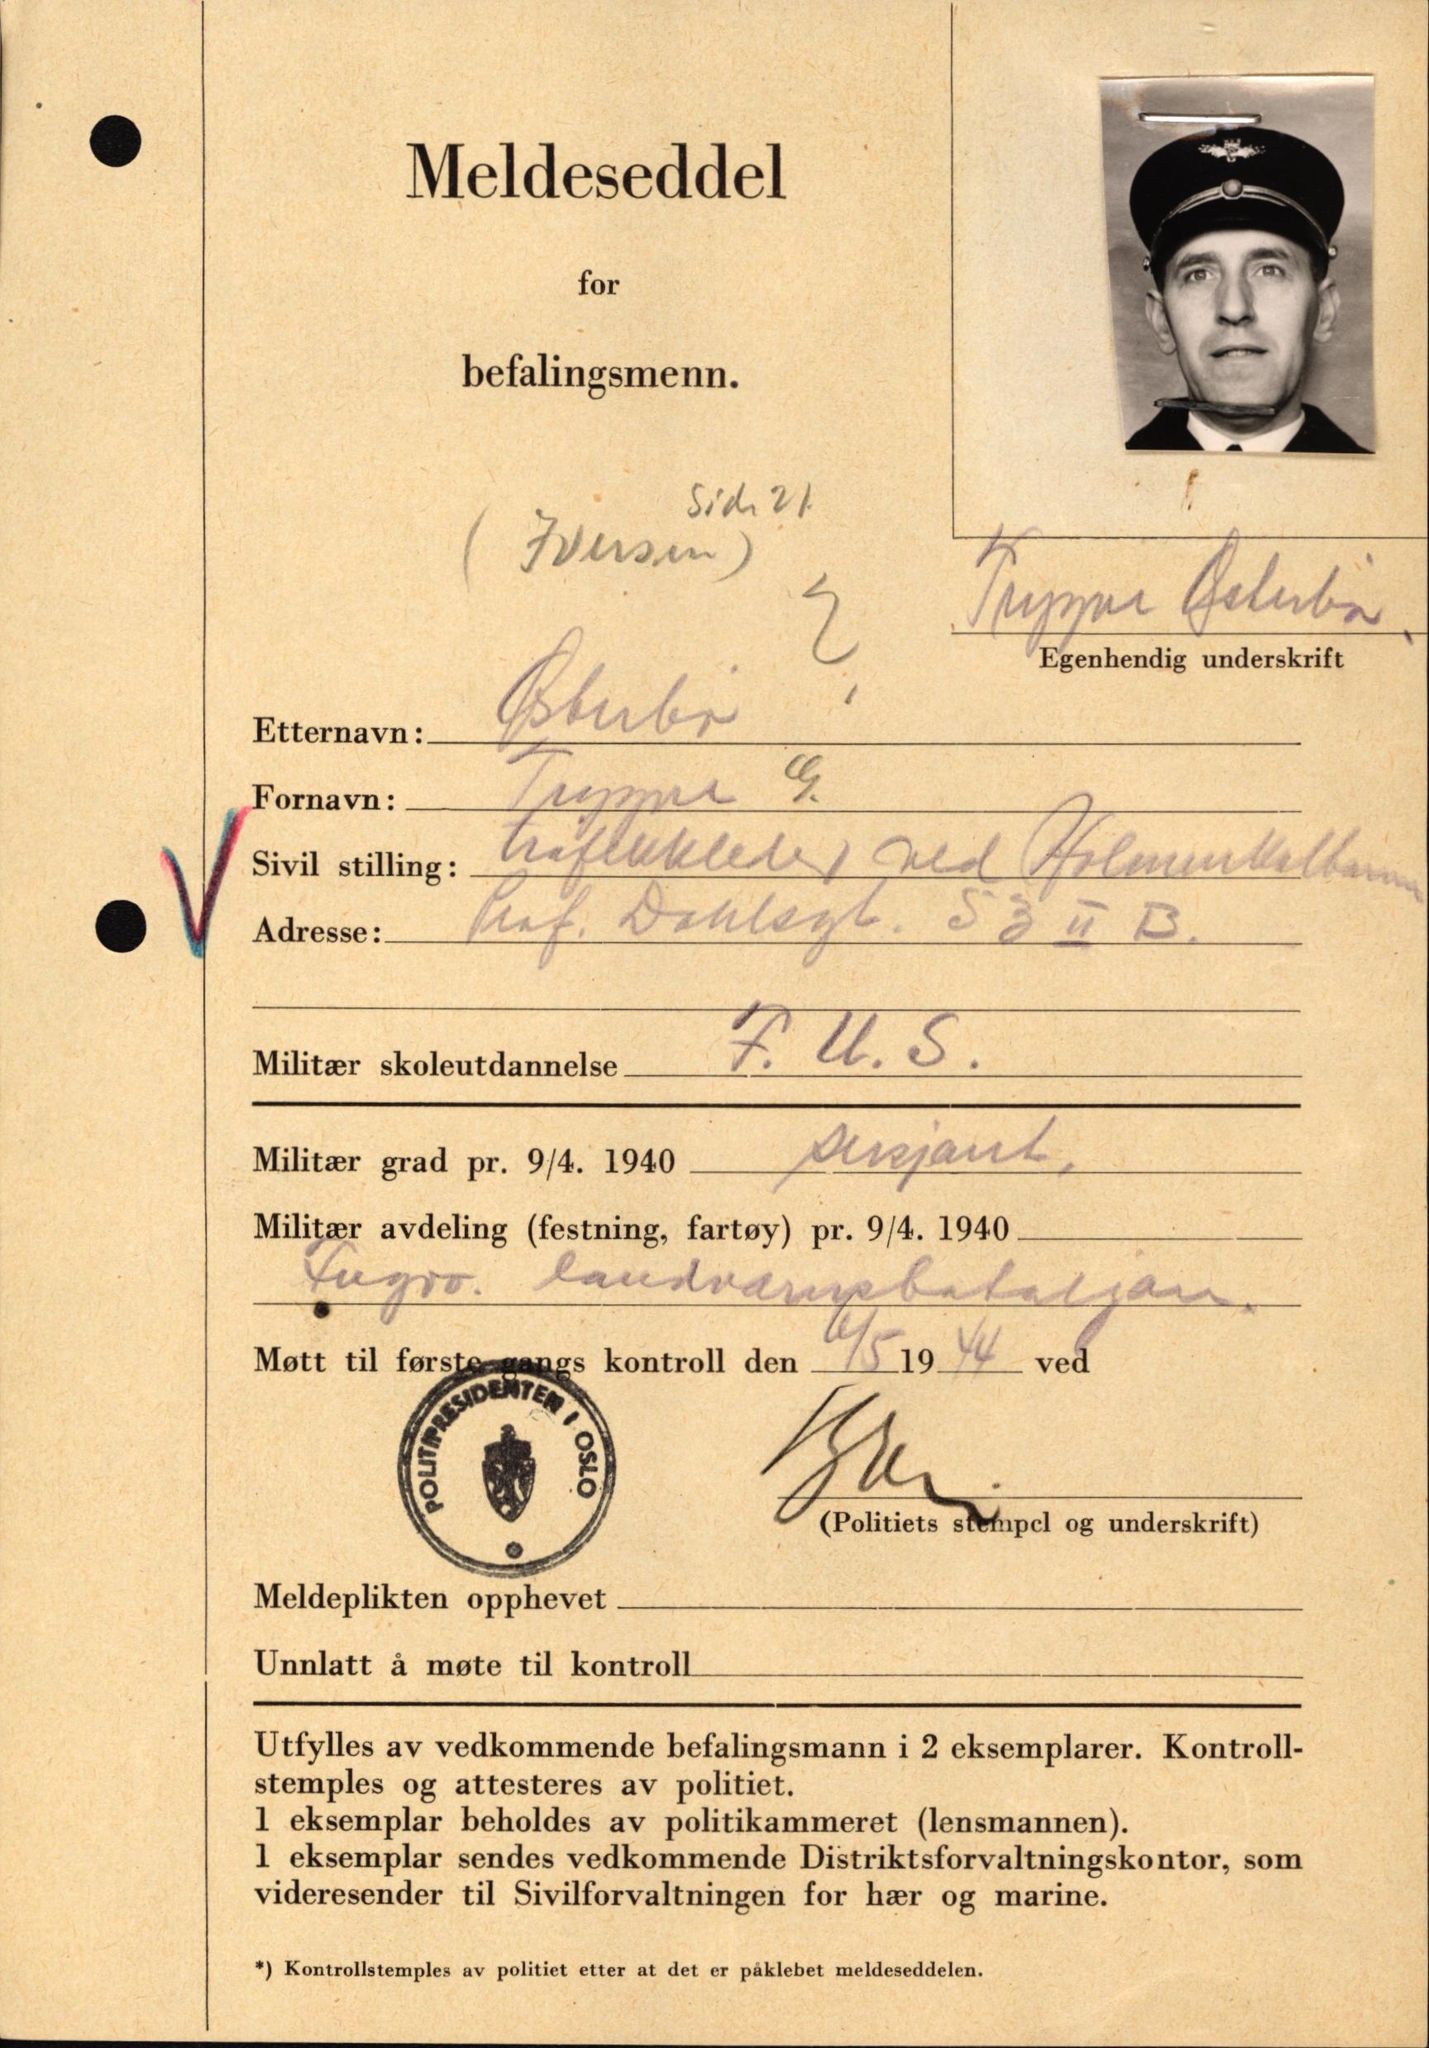 Meldeseddel
for
befalingsmenn.
Side 21.
(Iversen)
Trygve Østerbø.
Egenhendig underskrift
Etternavn: Østerbø
Fornavn: Trygve G.
Sivil stilling: trafikkleder ved Holmenkolbanen
Adresse: Prof. Dahlsgt. 53 II B.
Militær skoleutdannelse F. U. S.
Militær grad pr. 9/4. 1940 sersjant.
Militær avdeling (festning, fartøy) pr. 9/4. 1940
Ingvo. landvernsbataljon.
Møtt til første gangs kontroll den 6/5 1944 ved
POLITIPRESIDENTEN I OSLO
(Politiets stempel og underskrift)
Meldeplikten opphevet
Unnlatt å møte til kontroll
Utfylles av vedkommende befalingsmann i 2 eksemplarer. Kontroll-
stemples og attesteres av politiet.
1 eksemplar beholdes av politikammeret (lensmannen).
1 eksemplar sendes vedkommende Distriktsforvaltningskontor, som
videresender til Sivilforvaltningen for hær og marine.
*) Kontrollstemples av politiet etter at det er påklebet meldeseddelen.